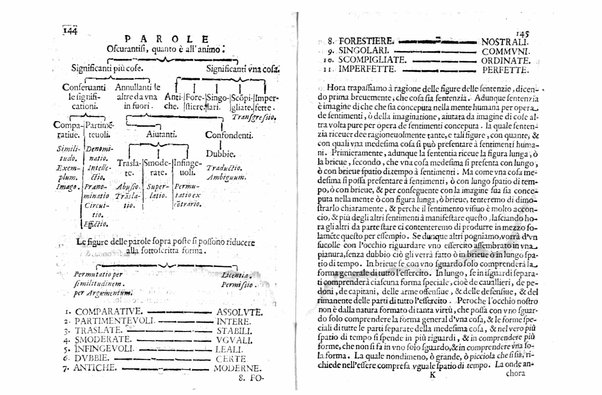 144
PAROLE
Oscurantisi, quanto è all'animo.
Significanti più cose. Significanti vna cosa.
Conseruanti le significationi. Annullanti le altre da vna in fuori. Antiche. Forestiere. Singolari. Scopigliate. Imperfette.
Transgressio.
Comparatiue. Partimeteuoli. Aiutanti. Confondenti.
Similitudo. Exemplum. Imago.
Denominatio. Intellectio. Pronominatio Circuitio. Effictio.
Dubbie.
Traductio. Ambiguum.
Traslate. Smoderate. Infingeuoli.
Abusio. Trāslatio. Superlatio. Permutatio ex cōtrario.
Le figure delle parole sopra poste si possono riducere
alla sottoscritta forma.
Permutatio per similitudinem. per Argumentum. Licentia. Permissio.
1. COMPARATIVE. ASSOLVTE.
2. PARTIMENTEVOLI. INTERE.
3. TRASLATE. STABILI.
4. SMODERATE. VGVALI.
5. INFINGEVOLI. LEALI.
6. DVBBIE. CERTE
7. ANTICHE. MODERNE.
8. FO-
145
8. FORESTIERE. NOSTRALI.
9. SINGOLARI. COMMVNI.
10. SCOMPIGLIATE. ORDINATE.
11. IMPERFETTE. PERFETTE.
Hora trapassiamo à ragione delle figure delle sentenzie, dicen-
do prima breuemente, che cosa sia sentenzia. Adunque sentenzia
è imagine di che che sia conceputa nella mente humana per opera
de sentimenti, ò della imaginatione, aiutata da imagine di cose al-
tra volta pure per opera de sentimenti conceputa. la quale senten-
zia ricerca tre ragionamenti, con figure, con quante, & con quali,
con quali vna medesima cosa di può presentare à sentimenti huma-
ni. Primieramente, adunque la sentenzia riceue figura lunga, ò
brieue, secondo, che vna cosa medesima si presenta con lungo,
ò con brieue spatio di tempo à sentimenti. Ma come vna cosa me-
desima si possa presentare à sentimenti, ò con lungo spatio di tem-
po, ò con brieue, & per conseguente con la imagine sua sia conce-
puta nella mente con figura lunga, ò brieue, tenteremo di dimo-
strarlo chiaramente, & perche il sentimento visiuo è molto accon-
cio, & più degli altri sentimenti à manifestare questo, lasciando ho-
ra gli altri da parte ci contenteremo di produrre in mezzo so-
lamēte questo per essempio. Se durante altri pognamo, vorrà d'vn
sucolle con l'occhio riguardare vno essercito assembrato in vna
pianura, senza dubbio ciò gli verrà fatto ò in brieue, ò in lungo spa-
tio di tempo. In brieue se con vno sguardo solo comprenderà la
forma generale di tutto l'essercito. In lungo, se in isguardi separa-
ti comprenderà ciascuna forma speciale, cioè de cauallieri, de pe-
doni, de capitani, delle arme offensiue, & delle defensiue, & del
rimanente delle parti di tutto l'essercito. Percioche l'occhio nostro
non è dalla natura formato di tanta virtù, che possa con vno sguar-
do solo comprendere la forma general d'vna cosa, & le forme spe-
ciali di tutte le parti separate della medesima cosa, & nel vero più
spatio di tempo si spende in più riguardi, & in comprendere più
forme, che non si fa in vno solo sguardo, & in comprendere vna so-
la forma. La quale nondimeno, ò grande, ò picciola che si sia, ri-
chiede nell'essere compresa vguale spatio di tempo. La onde an-
K chora